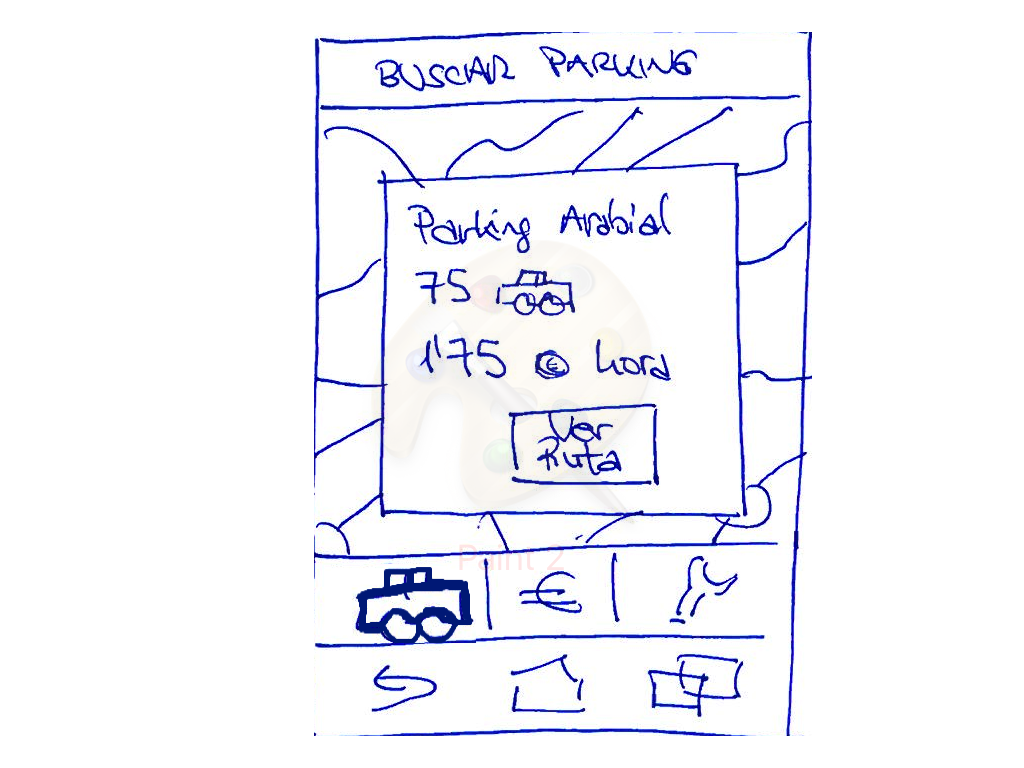 BUSCAR PARKING
Parking Arabial
75
1'75 € hora
Ver
Ruta
Paint 2
€